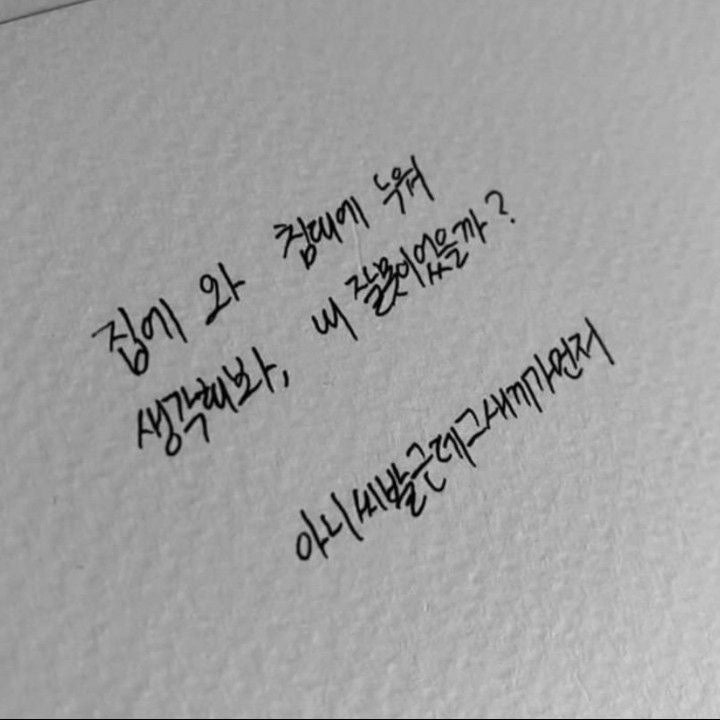 집에 와 침대에 누워
생각해봐, 내 잘못이었을까?
아니씨발근데그새끼가먼저